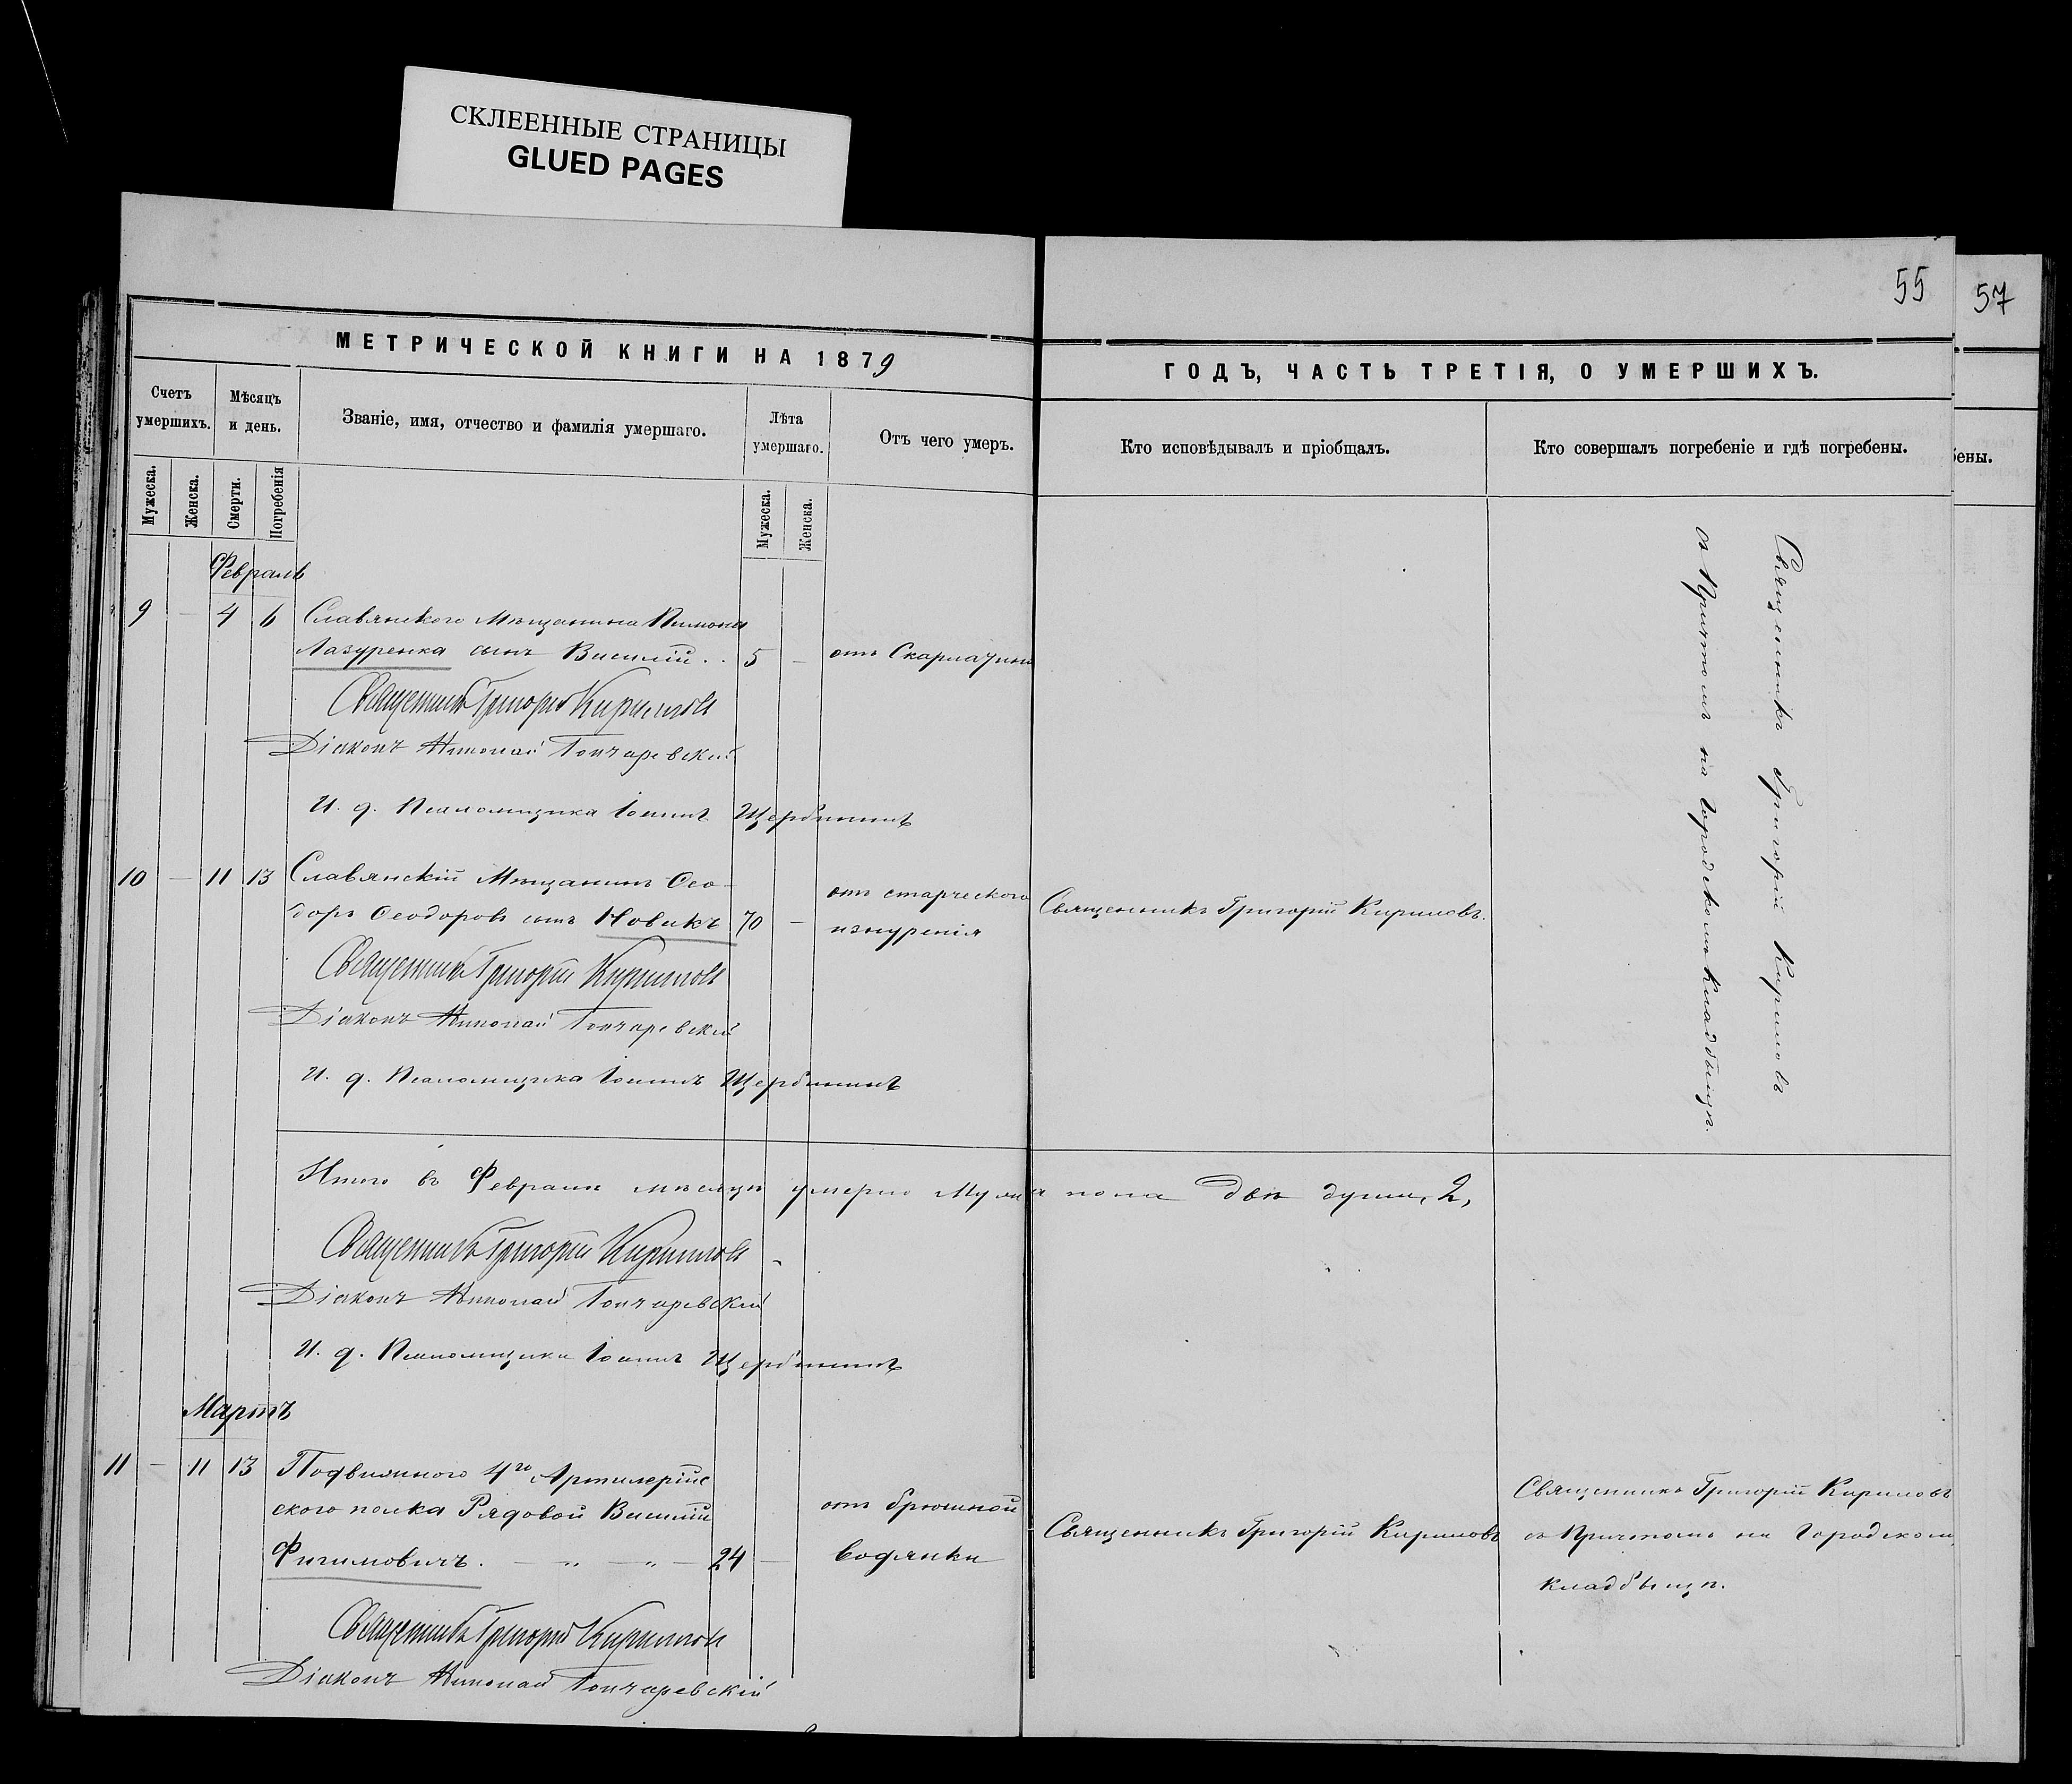 СКЛЕЕННЫЕ СТРАНИЦЫ
GLUED PAGES
55
57
МЕТРИЧЕСКОЙ КНИГИ НА 1879
ГОДЪ, ЧАСТЬ ТРЕТІЯ, О УМЕРШИХЪ.
Счетъ умершихъ.
Мѣсяцъ и день.
Званіе, имя, отчество и фамилія умершаго.
Лѣта умершаго.
Отъ чего умеръ.
Кто исповѣдывалъ и пріобщалъ.
Кто совершалъ погребеніе и гдѣ погребены.
бены.
Мужеска.
Женска.
Смерти.
Погребенія
Мужеска.
Женска.
Февраль
9 — 4 6 Славянскаго Мѣщанина Пимона
Лазуренка сынъ Василій . . 5 — отъ Скарлатины
Священникъ Григорій Кириловъ
Діаконъ Николай Гончаревскій
И. д. Псаломщика Іоаннъ Щербининъ
10 — 11 13 Славянскій Мѣщанинъ Ѳео-
доръ Ѳеодоровъ сынъ Новикъ 70 — отъ старческого
изнуренія
Священникъ Григорій Кириловъ.
Священникъ Григорій Кириловъ
Діаконъ Николай Гончаревскій
И. д. Псаломщика Іоаннъ Щербининъ
Священникъ Григорій Кириловъ
съ Причтомъ на Городскомъ Кладбыщѣ.
Итого въ Февралѣ мѣсяцѣ умерло Муж пола двѣ души, 2,
Священникъ Григорій Кириловъ
Діаконъ Николай Гончаревскій
И. д. Псаломщика Іоаннъ Щербининъ
Мартъ
11 — 11 13 Подвижного 4го Артилерійс
ского полка Рядовой Василій
Фигимовичъ. — „ — „ — 24 —
отъ брюшной
водянки
Священникъ Григорій Кириловъ
Священникъ Григорій Кириловъ
съ Причтомъ на Городском
кладбыщѣ.
Священникъ Григорій Кириловъ
Діаконъ Николай Гончаревскій